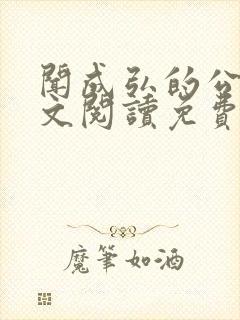 聞成弘的公
文閱讀免費
魔筆如酒